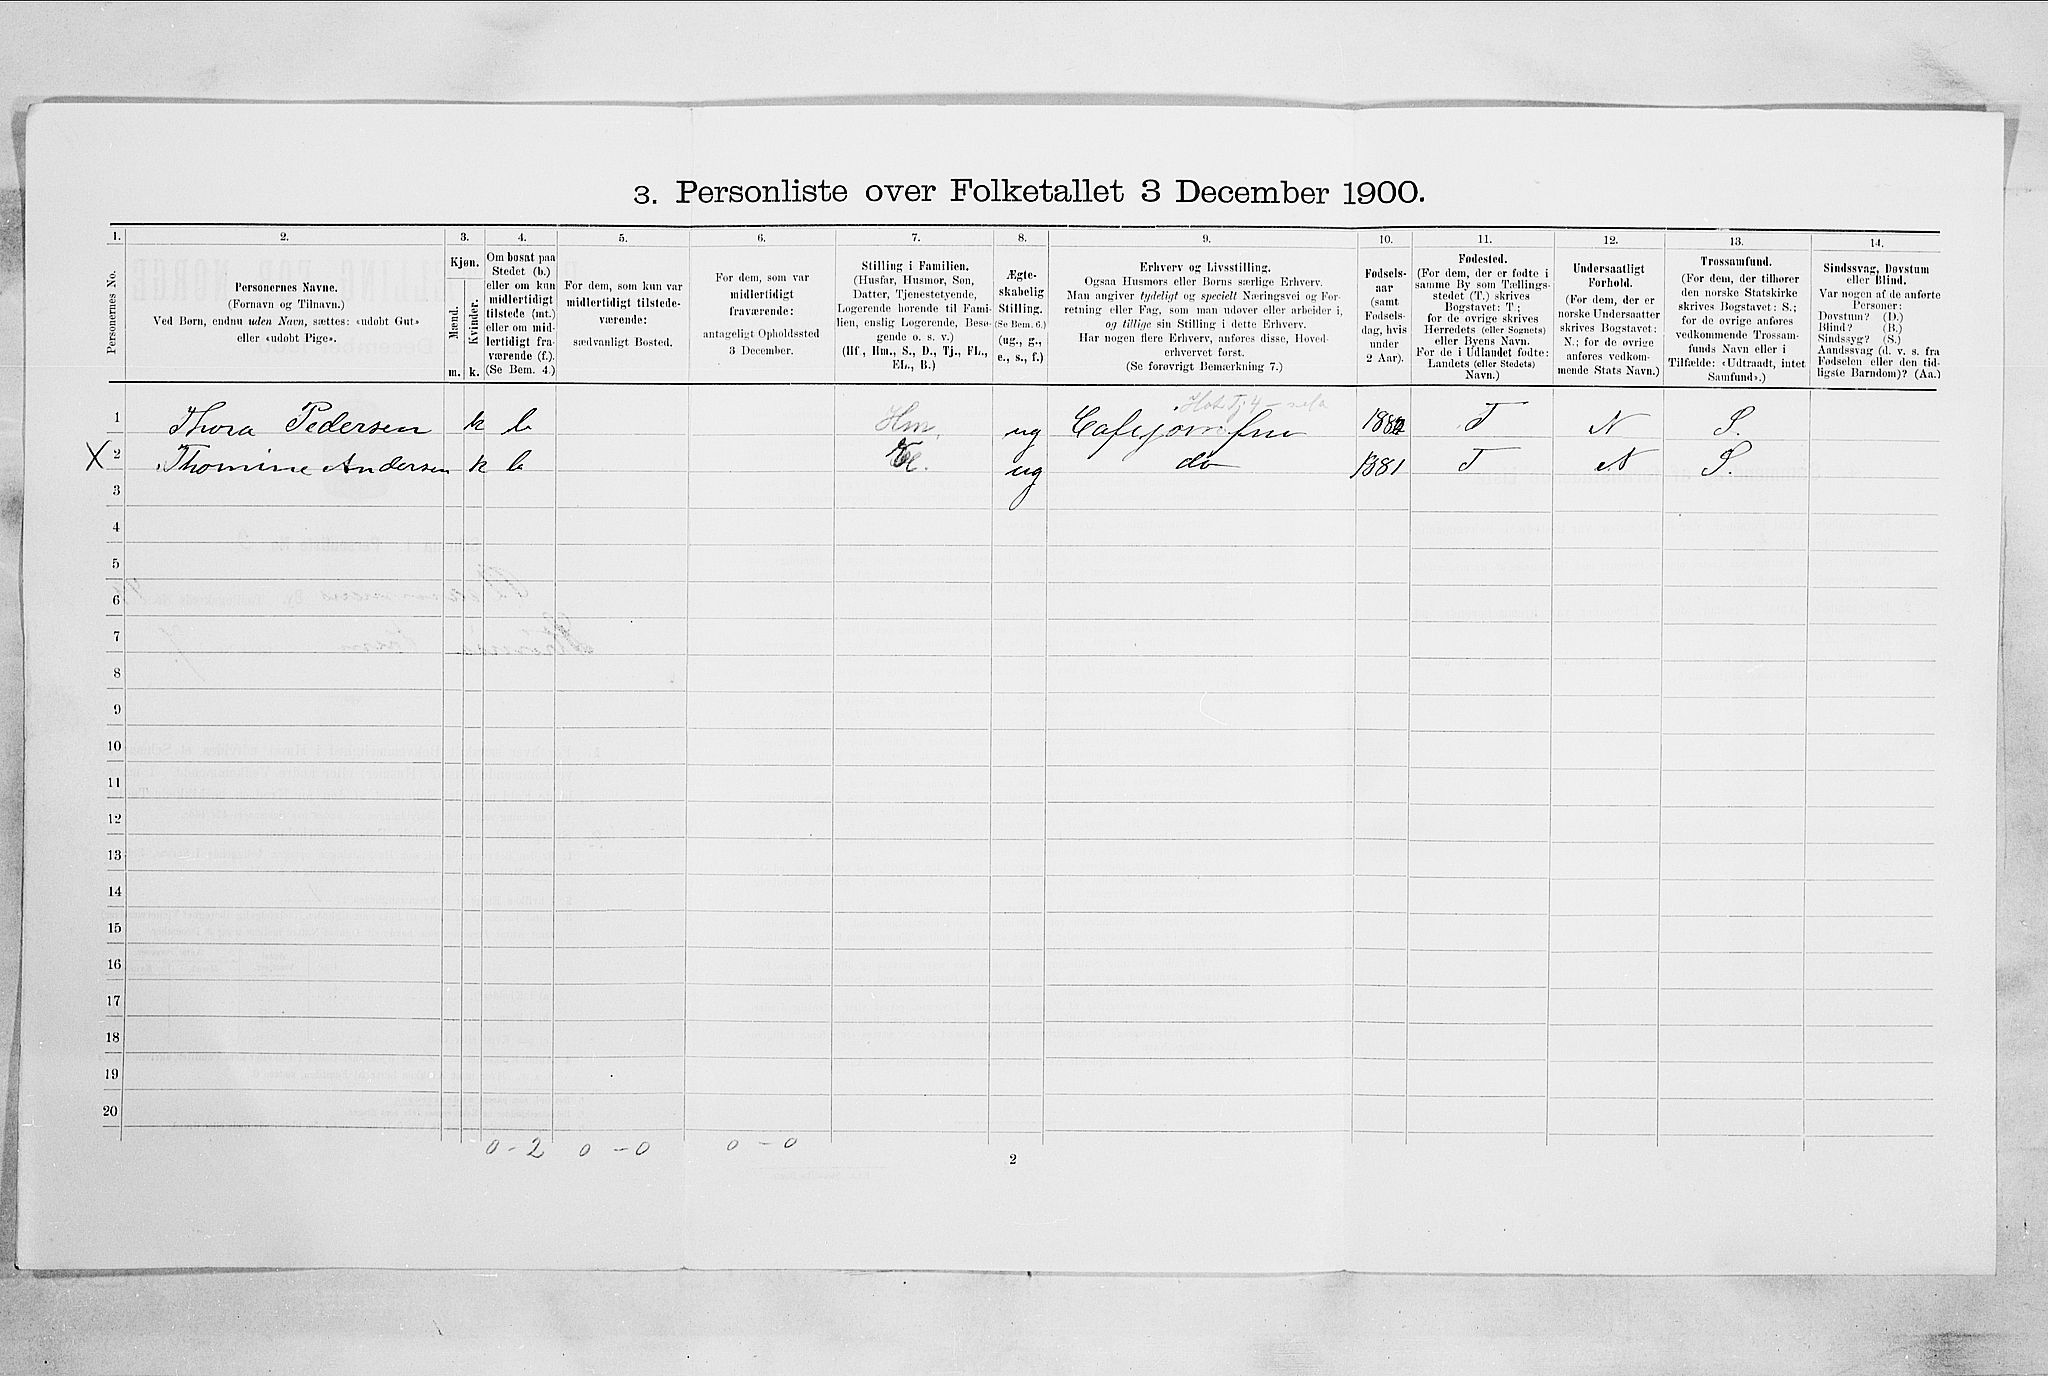 3. Personliste over Folketallet 3 December 1900.
1. 2. 3. 4. 5. 6. 7. 8. 9. 10. 11. 12. 13. 14.
Personernes No.
Personernes Navne.
(Fornavn og Tilnavn.)
Ved Børn, endnu uden Navn, sættes: «udobt Gut»
eller «udobt Pige».
Kjøn.
Mænd.
Kvinder.
m. k.
Om bosat paa
Stedet (b.)
eller om kun
midlertidigt
tilstede (mt.)
eller om mid-
lertidigt fra-
værende (f.)
(Se Bem. 4.)
For dem, som kun var
midlertidigt tilstede-
værende:
sædvanligt Bosted.
For dem, som var
midlertidigt
fraværende:
antageligt Opholdssted
3 December.
Stilling i Familien.
(Husfar, Husmor, Søn,
Datter, Tjenestetyende,
Logerende hørende til Fami-
lien, enslig Logerende, Besø-
gende o. s. v.)
(Hf., Hm., S., D., Tj., FL.,
EL., B.)
Ægte-
skabelig
Stilling.
(Se Bem. 6.)
(ug., g.,
e., s., f.)
Erhverv og Livsstilling.
Ogsaa Husmors eller Børns særlige Erhverv.
Man angiver tydeligt og specielt Næringsvei og For-
retning eller Fag, som man udøver eller arbeider i,
og tillige sin Stilling i dette Erhverv.
Har nogen flere Erhverv, anføres disse, Hoved-
erhvervet først.
(Se forøvrigt Bemærkning 7.)
Fødsels-
aar
(samt
Fødsels-
dag, hvis
under
2 Aar).
Fødested.
(For dem, der er fødte i
samme By som Tællings-
stedet (T.) skrives
Bogstavet: T.;
for de øvrige skrives
Herredets (eller Sognets)
eller Byens Navn.
For de i Udlandet fødte:
Landets (eller Stedets)
Navn.)
Undersaatligt
Forhold.
(For dem, der er
norske Undersaatter
skrives Bogstavet:
N.; for de øvrige
anføres vedkom-
mende Stats Navn.)
Trossamfund.
(For dem, der tilhører
den norske Statskirke
skrives Bogstavet: S.;
for de øvrige anføres
vedkommende Trossam-
funds Navn eller i
Tilfælde: «Udtraadt, intet
Samfund».)
Sindssvag, Døvstum
eller Blind.
Var nogen af de anførte
Personer:
Døvstum? (D.)
Blind? (B.)
Sindssyg? (S.)
Aandssvag (d. v. s. fra
Fødselen eller den tid-
ligste Barndom)? (Aa.)
1 Thora Pedersen k b Hm. ug Cafejomfru 1882 T N S.
X 2 Thomine Andersen k b ug do 1881 T N S.
3
4
5
6
7
8
9
10
11
12
13
14
15
16
17
18
19
20
0 - 2 0 - 0 0 - 0
2